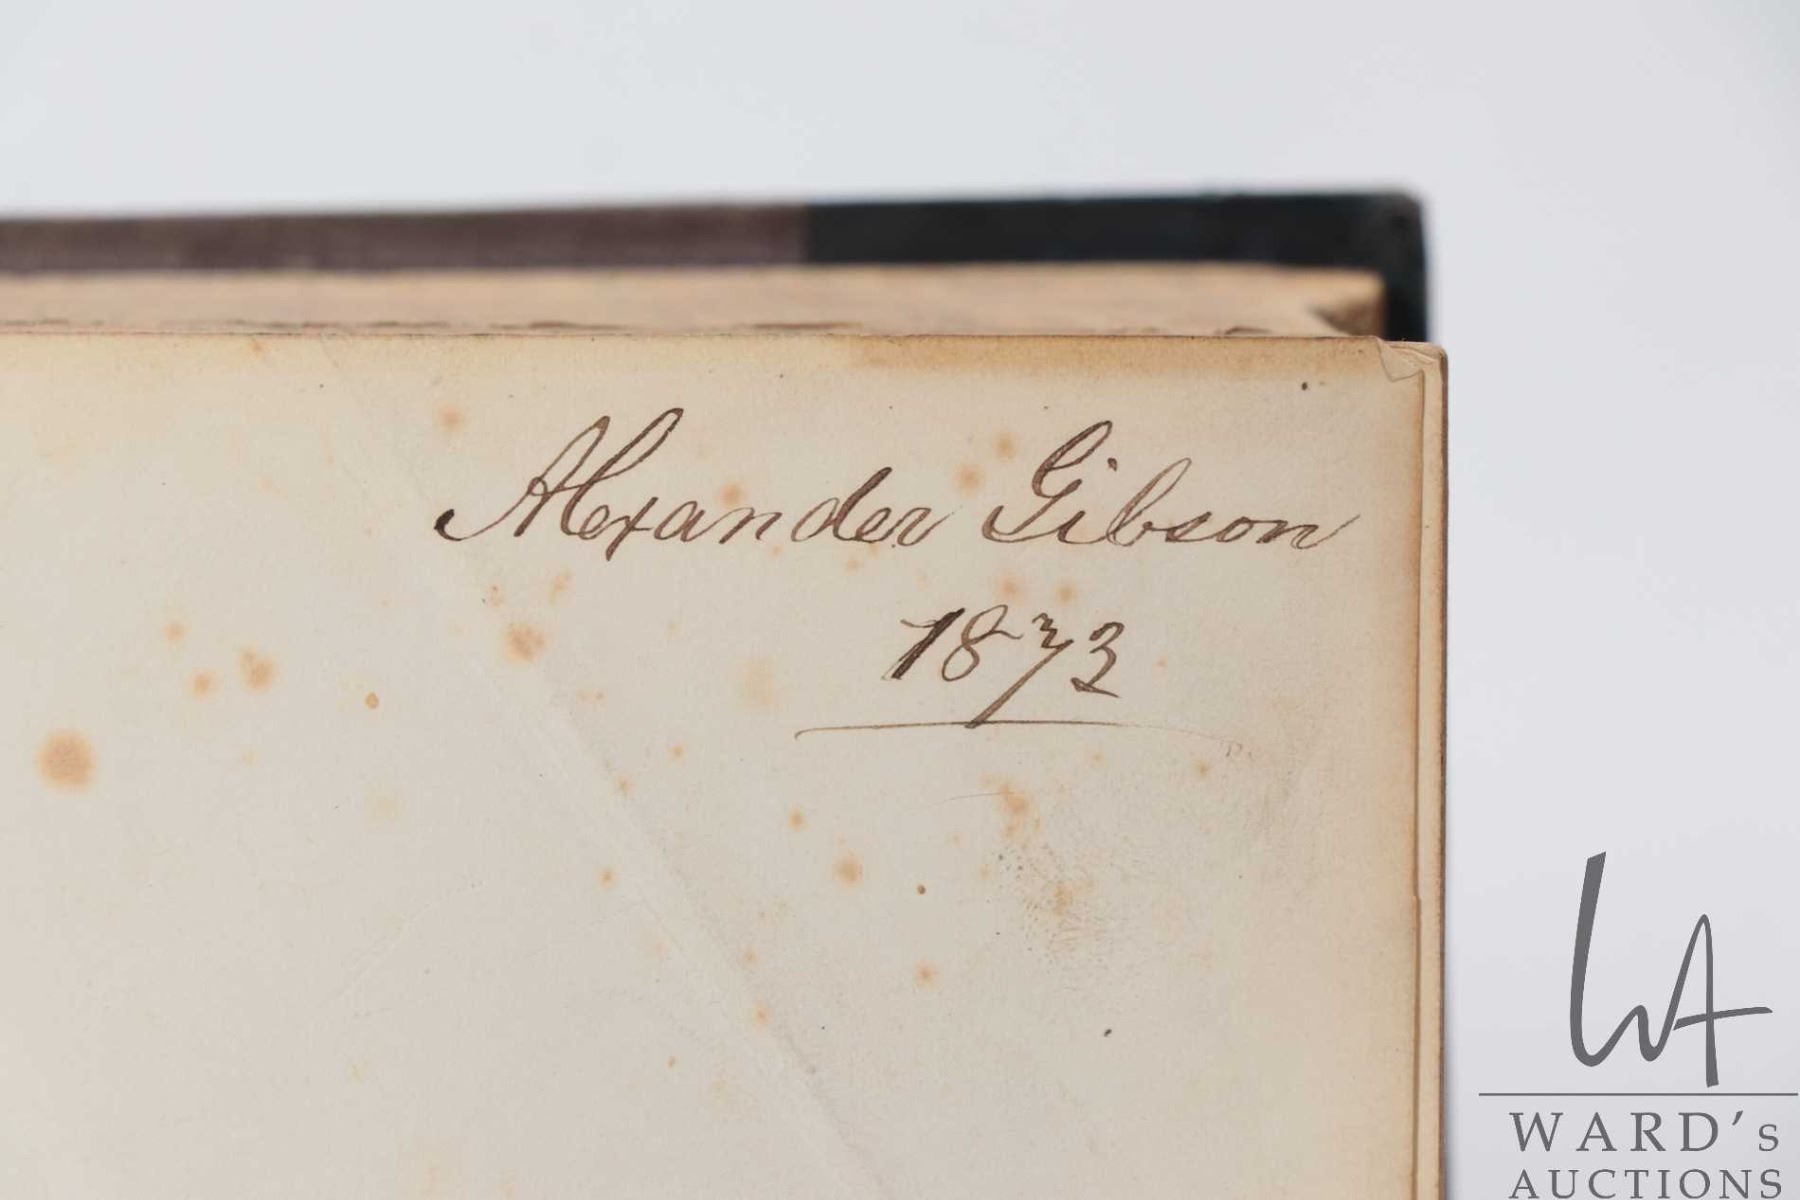 Alexander Gibson
1873
WA
WARD's
AUCTIONS